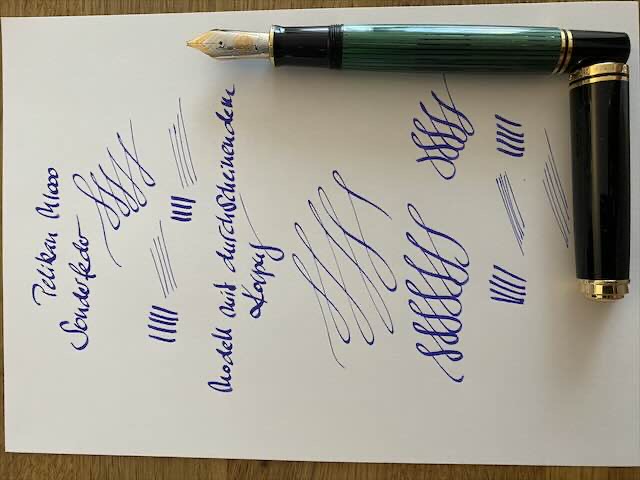 Pelikan M1000
Sonderfeder
Modell mit durchscheinendem
Korpus